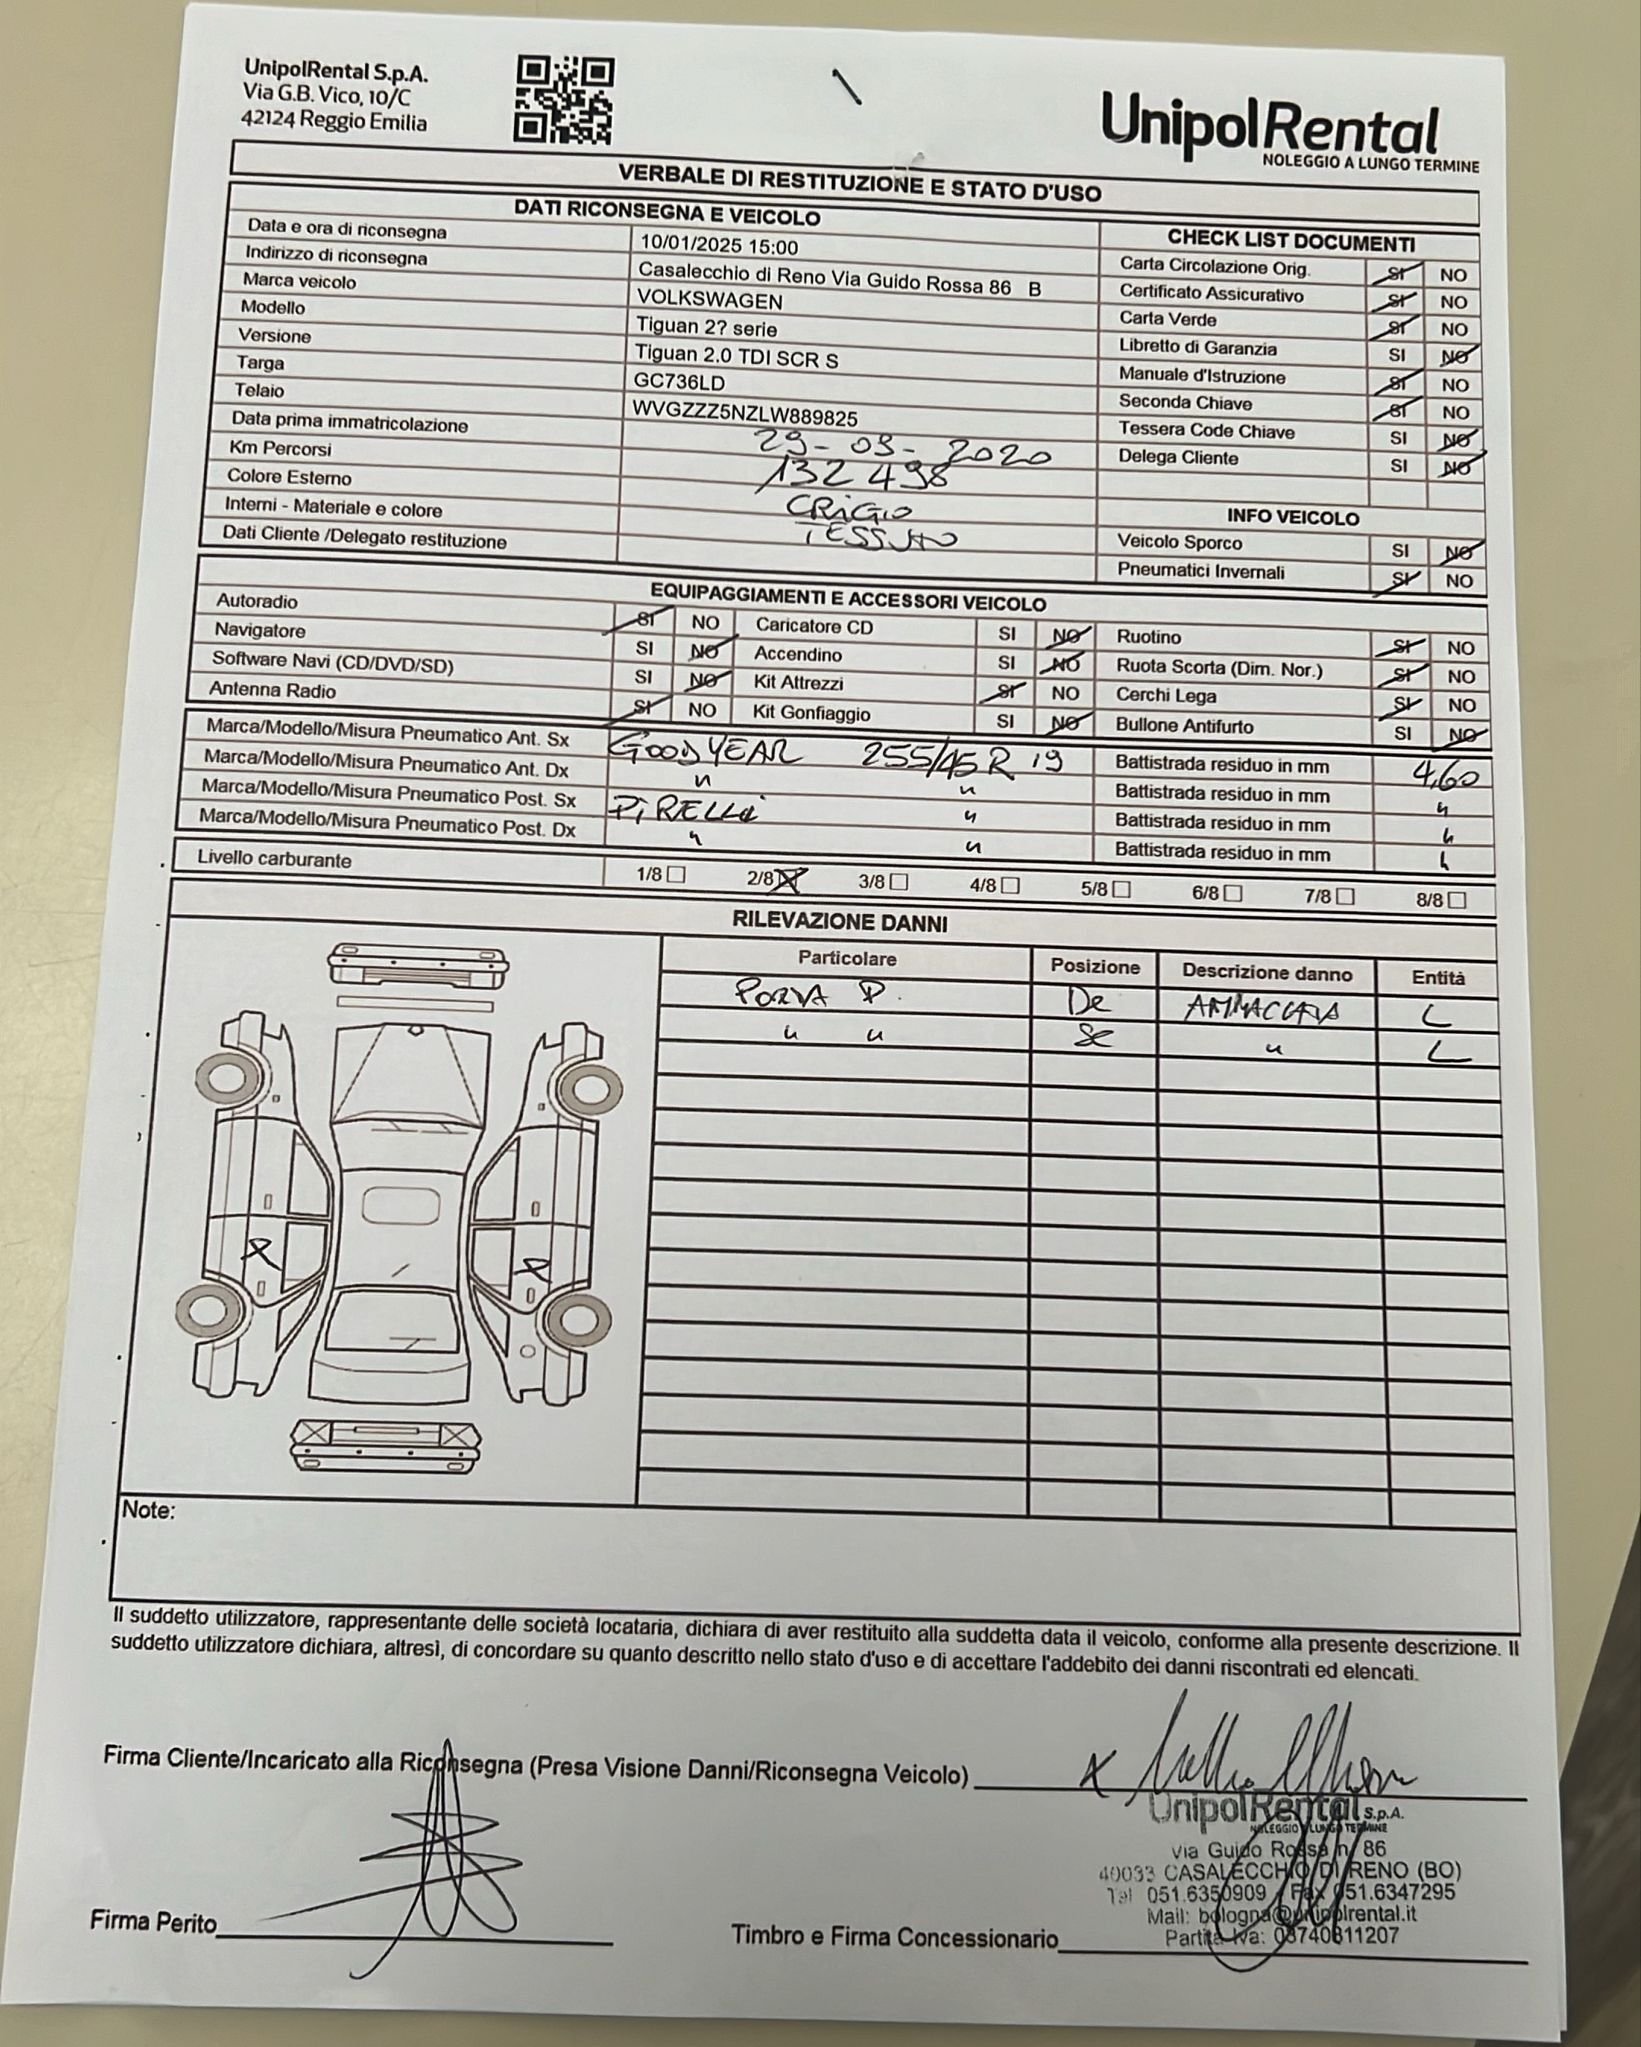 UnipolRental S.p.A.
Via G.B. Vico, 10/C
42124 Reggio Emilia
UnipolRental
NOLEGGIO A LUNGO TERMINE
VERBALE DI RESTITUZIONE E STATO D'USO
DATI RICONSEGNA E VEICOLO
Data e ora di riconsegna 10/01/2025 15:00
Indirizzo di riconsegna Casalecchio di Reno Via Guido Rossa 86 B
Marca veicolo VOLKSWAGEN
Modello Tiguan 2? serie
Versione Tiguan 2.0 TDI SCR S
Targa GC736LD
Telaio WVGZZZ5NZLW889825
Data prima immatricolazione 29-09-2020
Km Percorsi 132498
Colore Esterno GRIGIO
Interni - Materiale e colore TESSUTO
Dati Cliente /Delegato restituzione
CHECK LIST DOCUMENTI
Carta Circolazione Orig. SI NO
Certificato Assicurativo SI NO
Carta Verde SI NO
Libretto di Garanzia SI NO
Manuale d'Istruzione SI NO
Seconda Chiave SI NO
Tessera Code Chiave SI NO
Delega Cliente SI NO
INFO VEICOLO
Veicolo Sporco SI NO
Pneumatici Invernali SI NO
EQUIPAGGIAMENTI E ACCESSORI VEICOLO
Autoradio SI NO Caricatore CD SI NO Ruotino SI NO
Navigatore SI NO Accendino SI NO Ruota Scorta (Dim. Nor.) SI NO
Software Navi (CD/DVD/SD) SI NO Kit Attrezzi SI NO Cerchi Lega SI NO
Antenna Radio SI NO Kit Gonfiaggio SI NO Bullone Antifurto SI NO
Marca/Modello/Misura Pneumatico Ant. Sx GOODYEAR 255/45 R 19 Battistrada residuo in mm 4,60
Marca/Modello/Misura Pneumatico Ant. Dx " " Battistrada residuo in mm "
Marca/Modello/Misura Pneumatico Post. Sx PIRELLI " Battistrada residuo in mm "
Marca/Modello/Misura Pneumatico Post. Dx " " Battistrada residuo in mm "
Livello carburante 1/8 2/8 3/8 4/8 5/8 6/8 7/8 8/8
RILEVAZIONE DANNI
Particolare Posizione Descrizione danno Entità
PORTA P. L
" " "  L
Note:
Il suddetto utilizzatore, rappresentante delle società locataria, dichiara di aver restituito alla suddetta data il veicolo, conforme alla presente descrizione. Il
suddetto utilizzatore dichiara, altresì, di concordare su quanto descritto nello stato d'uso e di accettare l'addebito dei danni riscontrati ed elencati.
Firma Cliente/Incaricato alla Riconsegna (Presa Visione Danni/Riconsegna Veicolo)
UnipolRental S.p.A.
NOLEGGIO A LUNGO TERMINE
via Guido Rossa n. 86
40033 CASALECCHIO DI RENO (BO)
Tel 051.6350909 / Fax 051.6347295
Mail: bologna@unipolrental.it
Partita Iva: 03740811207
Firma Perito
Timbro e Firma Concessionario